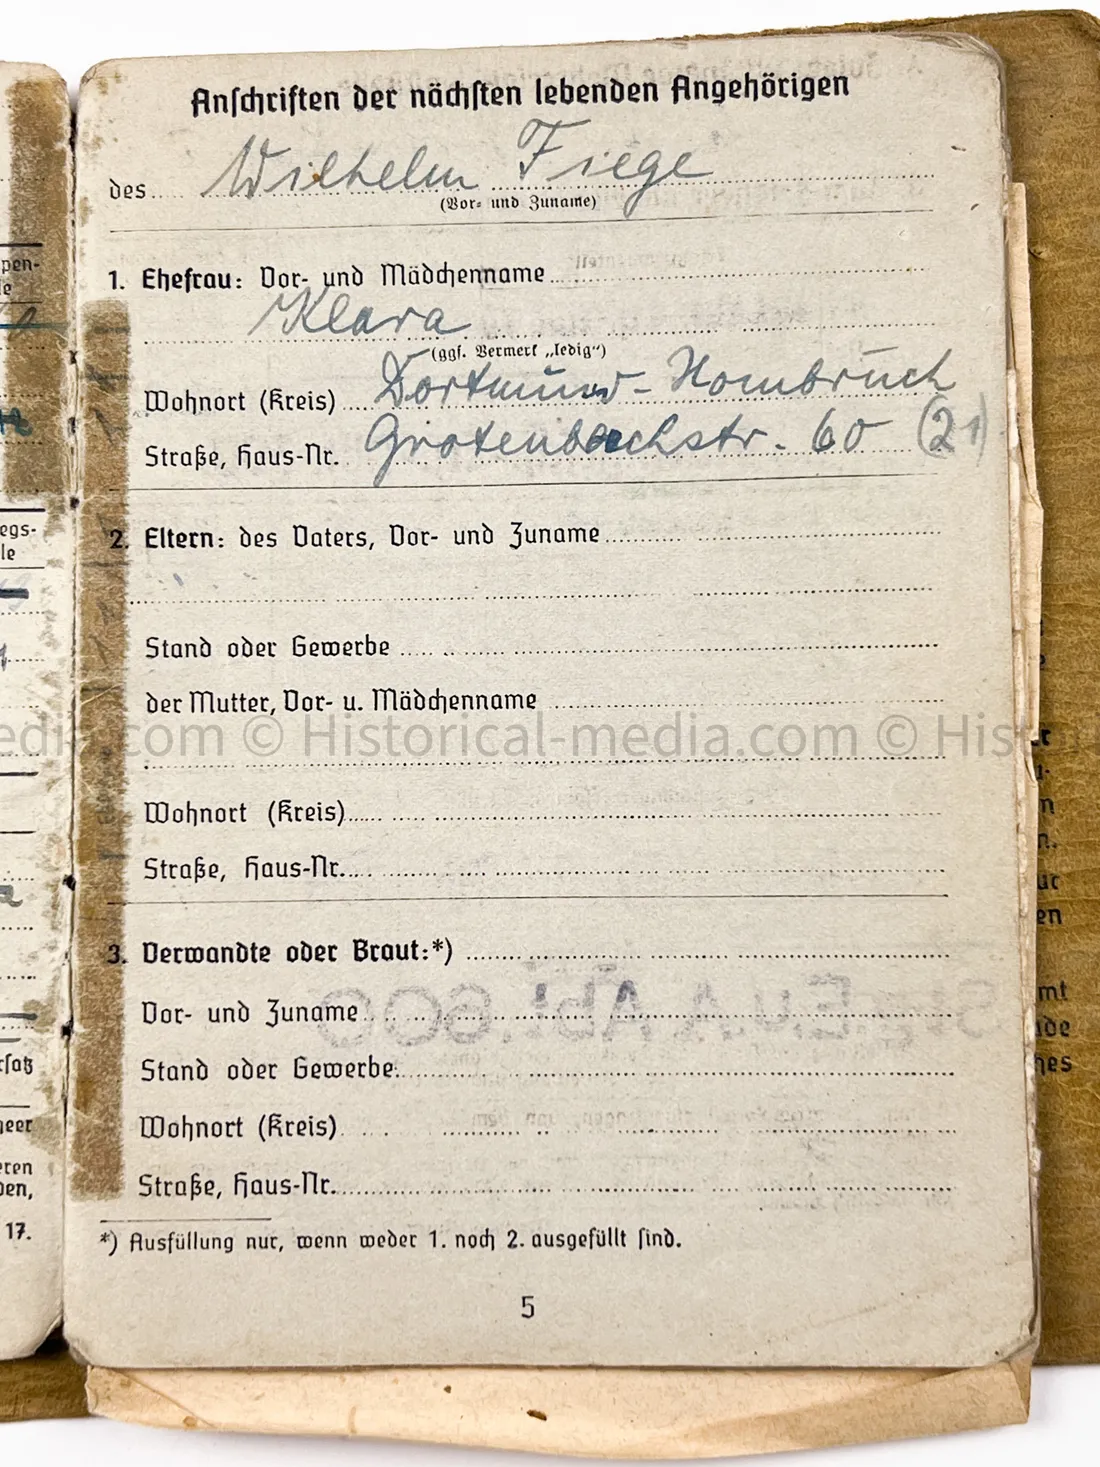 Anschriften der nächsten lebenden Angehörigen
des Wilhelm Fiege
(Vor- und Zuname)
1. Ehefrau: Vor- und Mädchenname
Klara
(ggf. Vermerk „ledig“)
Wohnort (Kreis) Dortmund-Hombruch
Straße, Haus-Nr. Grotenbachstr. 60 (21)
2. Eltern: des Vaters, Vor- und Zuname
Stand oder Gewerbe
der Mutter, Vor- u. Mädchenname
© Historical-media.com ©
Wohnort (Kreis)
Straße, Haus-Nr.
3. Verwandte oder Braut:*)
Vor- und Zuname
Stand oder Gewerbe
Wohnort (Kreis)
Straße, Haus-Nr.
*) Ausfüllung nur, wenn weder 1. noch 2. ausgefüllt sind.
5
17.